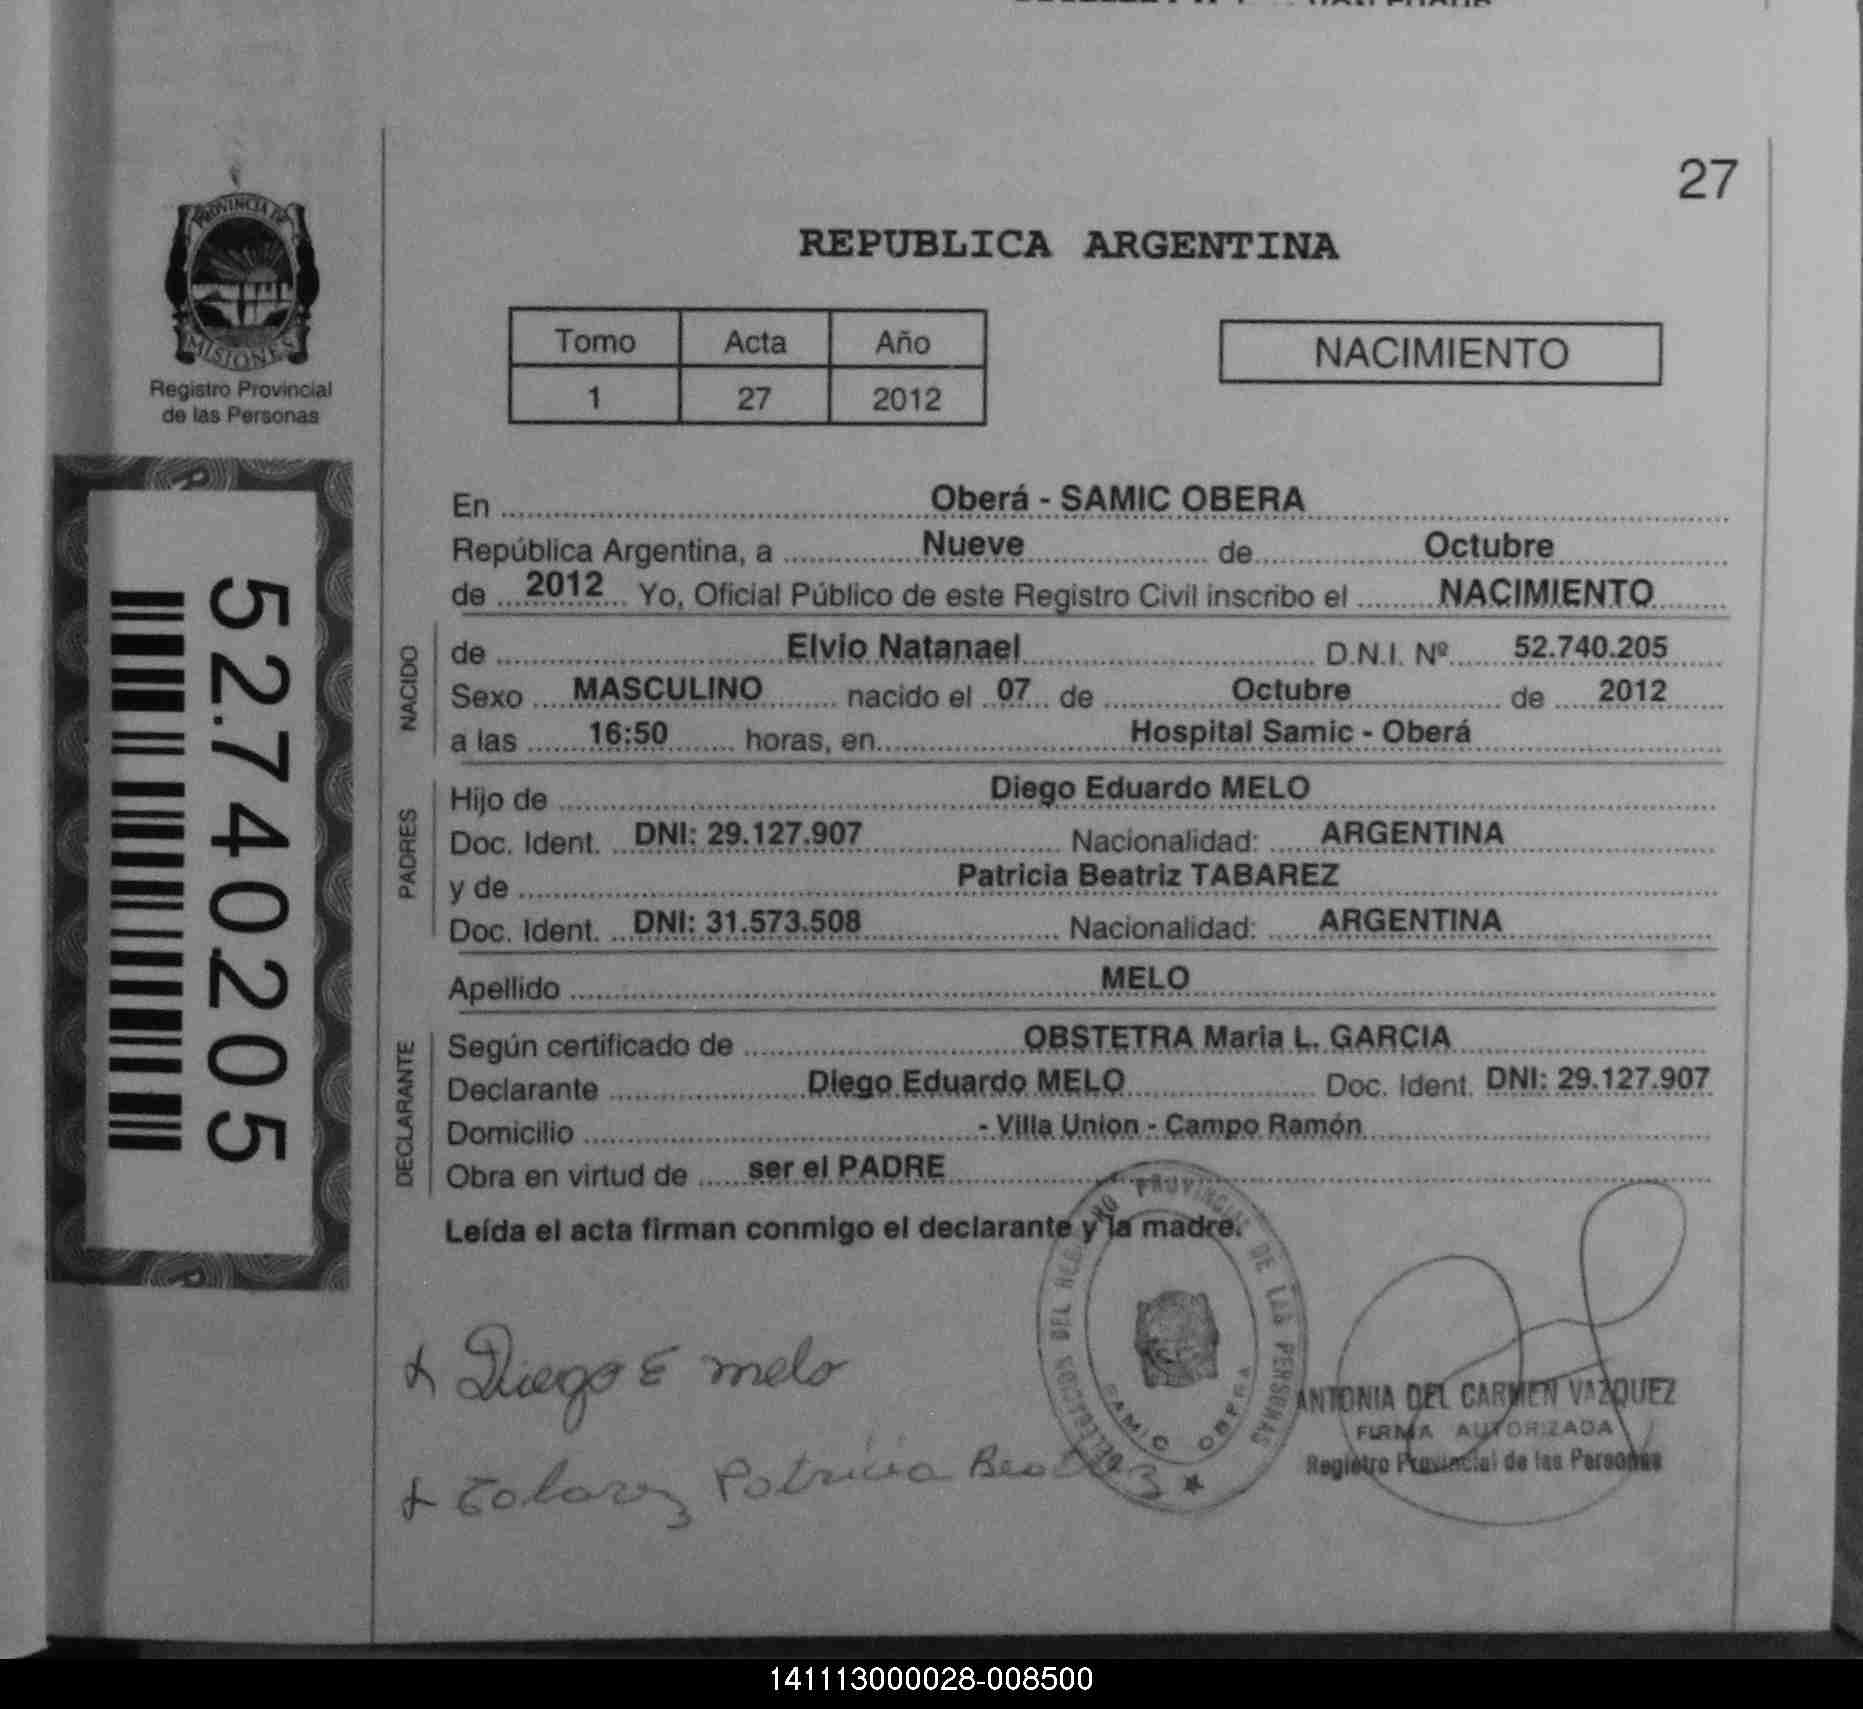 27
PROVINCIA DE
MISIONES
Registro Provincial
de las Personas
REPUBLICA ARGENTINA
Tomo Acta Año
1 27 2012
NACIMIENTO
52.740.205
En Oberá - SAMIC OBERA
República Argentina, a Nueve de Octubre
de 2012 Yo, Oficial Público de este Registro Civil inscribo el NACIMIENTO
NACIDO
de Elvio Natanael D.N.I. Nº 52.740.205
Sexo MASCULINO nacido el 07 de Octubre de 2012
a las 16:50 horas, en Hospital Samic - Oberá
PADRES
Hijo de Diego Eduardo MELO
Doc. Ident. DNI: 29.127.907 Nacionalidad: ARGENTINA
y de Patricia Beatriz TABAREZ
Doc. Ident. DNI: 31.573.508 Nacionalidad: ARGENTINA
Apellido MELO
DECLARANTE
Según certificado de OBSTETRA Maria L. GARCIA
Declarante Diego Eduardo MELO Doc. Ident. DNI: 29.127.907
Domicilio - Villa Union - Campo Ramón
Obra en virtud de ser el PADRE
Leída el acta firman conmigo el declarante y la madre.
Diego E melo
Patricia Beatriz
DELEGACION DEL PROVINCIAL DE LAS PERSONAS
SAMIC OBERA
ANTONIA DEL CARMEN VAZQUEZ
FIRMA AUTORIZADA
Registro Provincial de las Personas
141113000028-008500